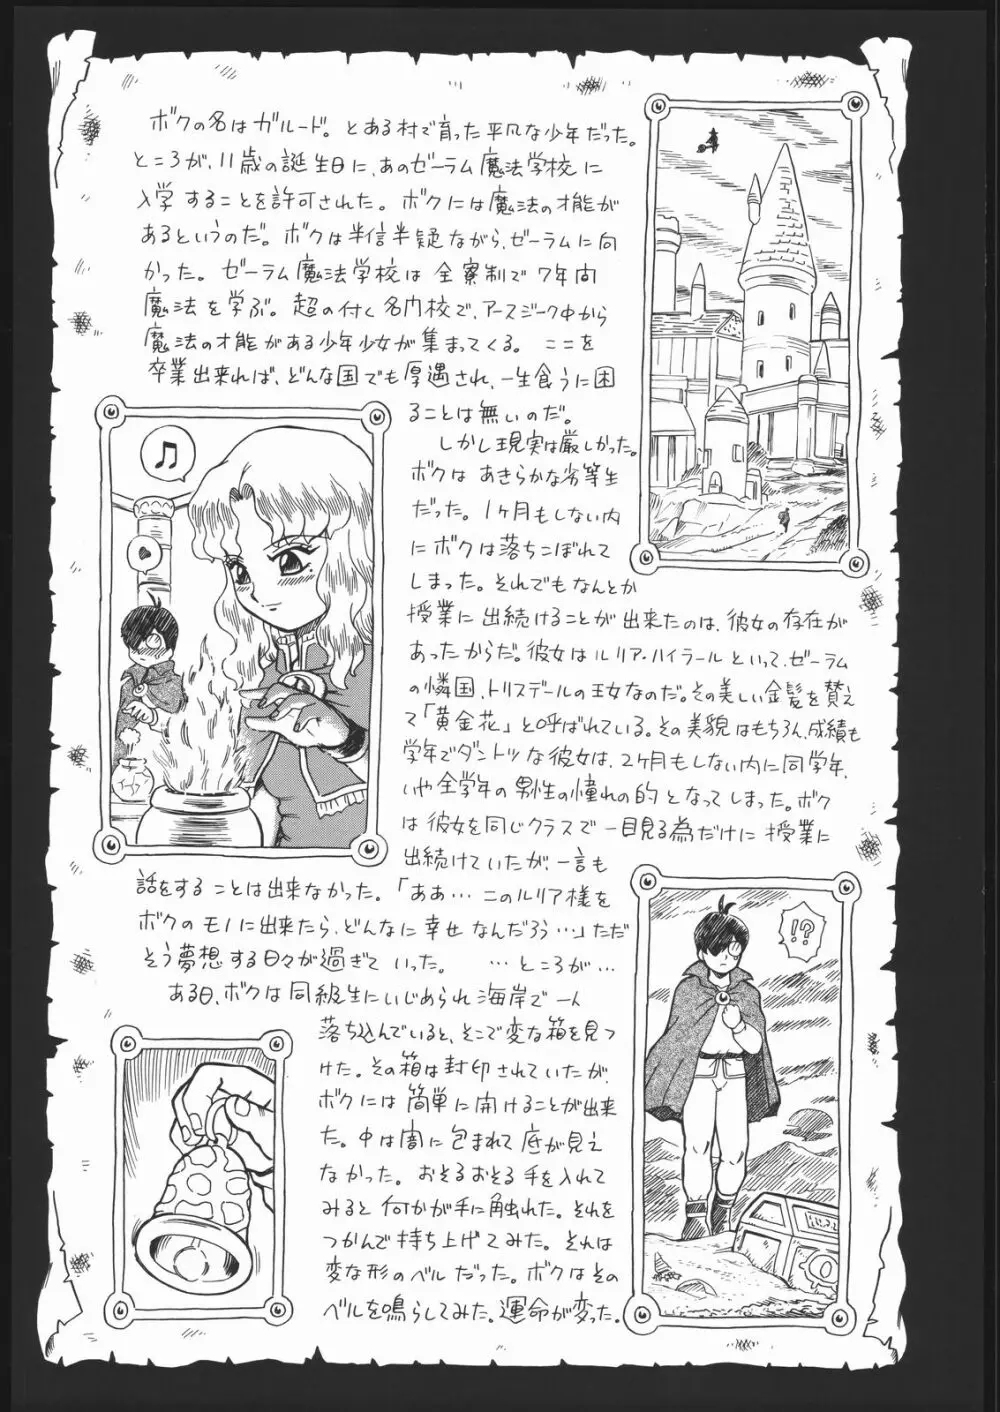 ボクの名はガルード。とある村で育った平凡な少年だった。
ところが、11歳の誕生日に、あのゼーラム魔法学校に
入学することを許可された。ボクには魔法の才能が
あるというのだ。ボクは半信半疑ながら、ゼーラムに向
かった。ゼーラム魔法学校は全寮制で7年間
魔法を学ぶ。超の付く名門校で、アースジーク中から
魔法の才能がある少年少女が集まってくる。ここを
卒業出来れば、どんな国でも厚遇され、一生食うに困
ることは無いのだ。
しかし現実は厳しかった。
ボクはあきらかな劣等生
だった。1ヶ月もしない内
にボクは落ちこぼれて
しまった。それでもなんとか
授業に出続けることが出来たのは、彼女の存在が
あったからだ。彼女はルリア・ハイラールといって、ゼーラム
の憐国、トリスデールの王女なのだ。その美しい金髪を賛え
て「黄金花」と呼ばれている。その美貌はもちろん、成績も
学年でダントツな彼女は、2ヶ月もしない内に同学年、
いや全学年の男性の憧れの的となってしまった。ボク
は彼女を同じクラスで一目見る為だけに授業に
出続けていたが、一言も
話をすることは出来なかった。「ああ…このルリア様を
ボクのモノに出来たら、どんなに幸せなんだろう…」ただ
そう夢想する日々が過ぎていった。 …ところが…
ある日、ボクは同級生にいじめられ海岸で一人
落ち込んでいると、そこで変な箱を見つ
けた。その箱は封印されていたが、
ボクには簡単に開けることが出来
た。中は闇に包まれて底が見え
なかった。おそるおそる手を入れて
みると何かが手に触れた。それを
つかんで持ち上げてみた。それは
変な形のベルだった。ボクはその
ベルを鳴らしてみた。運命が変った。
!?